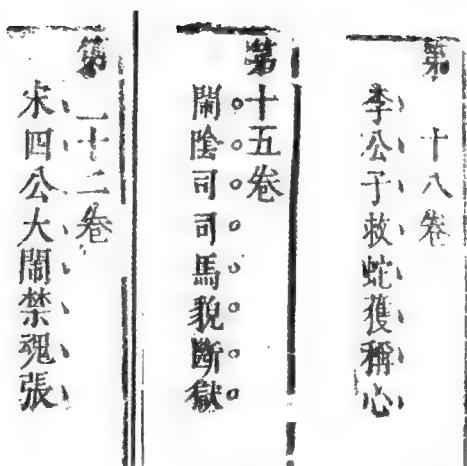 第十八卷
李公子救蛇獲稱心
第十五卷
鬧陰司司馬貌斷獄
第一十二卷
宋四公大鬧禁魂張